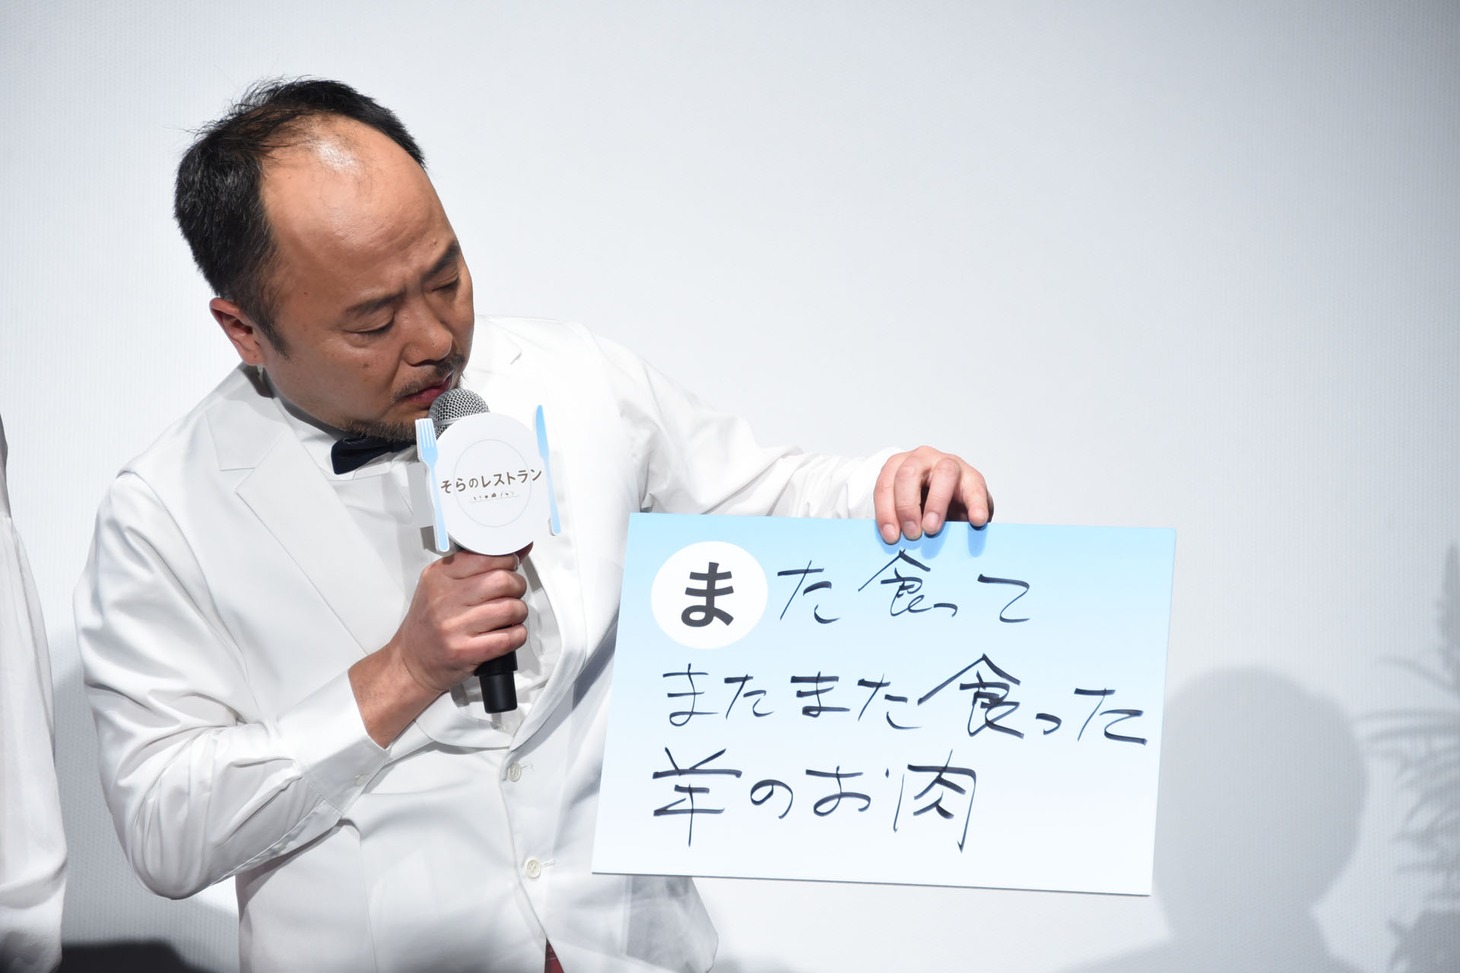 そらのレストラン
また食って
またまた食った
羊のお肉